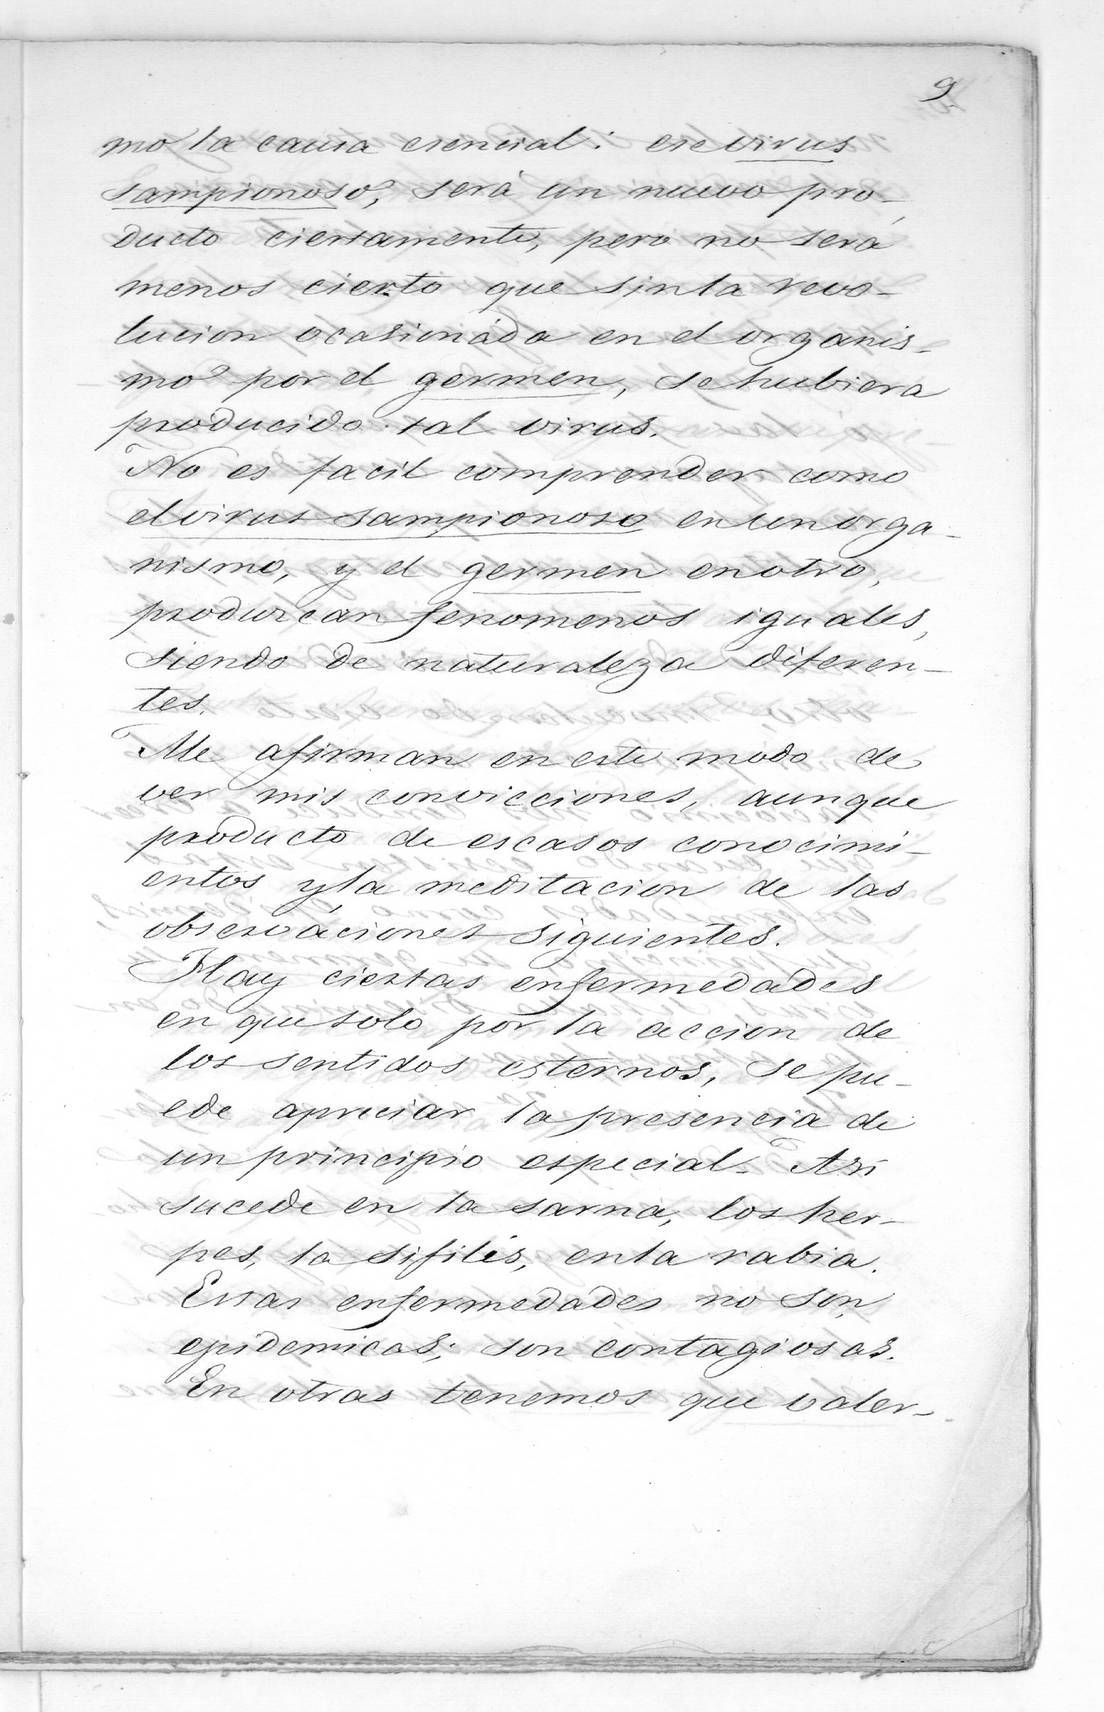 9
mo la causa esencial: ese virus
sampionoso, será un nuevo pro-
ducto ciertamente, pero no será
menos cierto que sin la revo-
lucion ocasionada en el organis-
mo por el germen, se hubiera
producido tal virus.
No es facil comprender como
el virus sampionoso en un orga-
nismo, y el germen en otro,
produzcan fenomenos iguales,
siendo de naturaleza diferen-
tes.
Me afirman en este modo de
ver mis convicciones, aunque
producto de escasos conocimi-
entos y la meditacion de las
observaciones siguientes.
Hay ciertas enfermedades
en que solo por la accion de
los sentidos esternos, se pu-
ede apreciar la presencia de
un principio especial. Asi
sucede en la sarna, los her-
pes, la sifilis, en la rabia.
Essas enfermedades no son
epidemicas; son contagiosas.
En otras tenemos que valer-